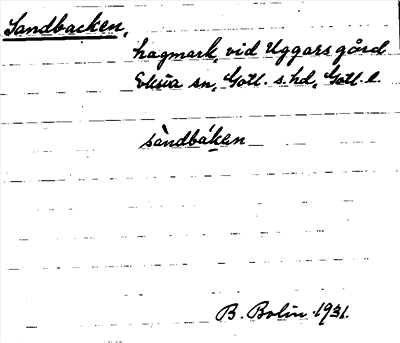 Sandbacken,
hagmark, vid Uggårs gård
Eksta sn, Gotl. s. hd, Gotl. l.
sàndbáken
B. Bolin 1931.